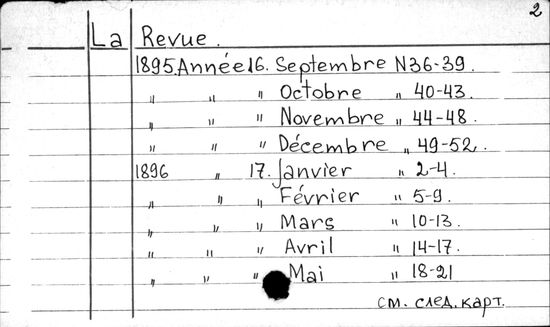 2
La Revue.
1895. Année 16. Septembre N36-39.
" " " Octobre " 40-43.
" " " Novembre " 44-48.
" " " Décembre " 49-52.
1896 " 17. Janvier " 2-4.
" " " Février " 5-9.
" " " Mars " 10-13.
" " " Avril " 14-17.
" " " Mai " 18-21
см. след. карт.